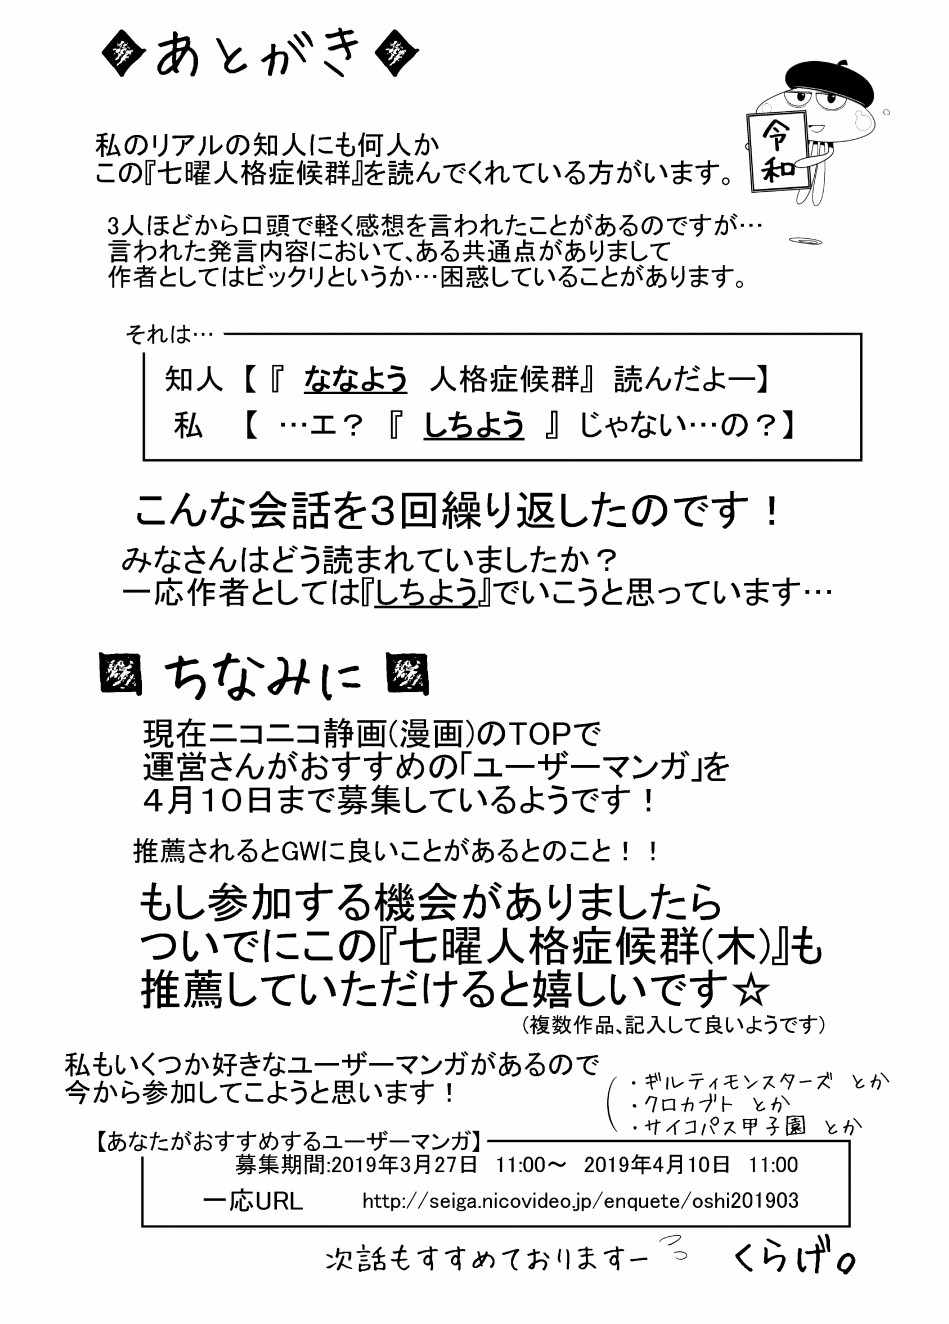 あとがき
令和
私のリアルの知人にも何人か
この『七曜人格症候群』を読んでくれている方がいます。
3人ほどから口頭で軽く感想を言われたことがあるのですが…
言われた発言内容において、ある共通点がありまして
作者としてはビックリというか…困惑していることがあります。
それは…
知人【『 ななよう 人格症候群』 読んだよー】
私 【 …エ？『 しちよう 』じゃない…の？】
こんな会話を３回繰り返したのです！
みなさんはどう読まれていましたか？
一応作者としては『しちよう』でいこうと思っています…
ちなみに
現在ニコニコ静画(漫画)のTOPで
運営さんがおすすめの「ユーザーマンガ」を
４月１０日まで募集しているようです！
推薦されるとGWに良いことがあるとのこと！！
もし参加する機会がありましたら
ついでにこの『七曜人格症候群(木)』も
推薦していただけると嬉しいです☆
(複数作品、記入して良いようです)
私もいくつか好きなユーザーマンガがあるので
今から参加してこようと思います！
・ギルティモンスターズ とか
・クロカブト とか
・サイコパス甲子園 とか
【あなたがおすすめするユーザーマンガ】
募集期間:2019年3月27日 11:00～ 2019年4月10日 11:00
一応URL http://seiga.nicovideo.jp/enquete/oshi201903
次話もすすめておりますー
くらげ。